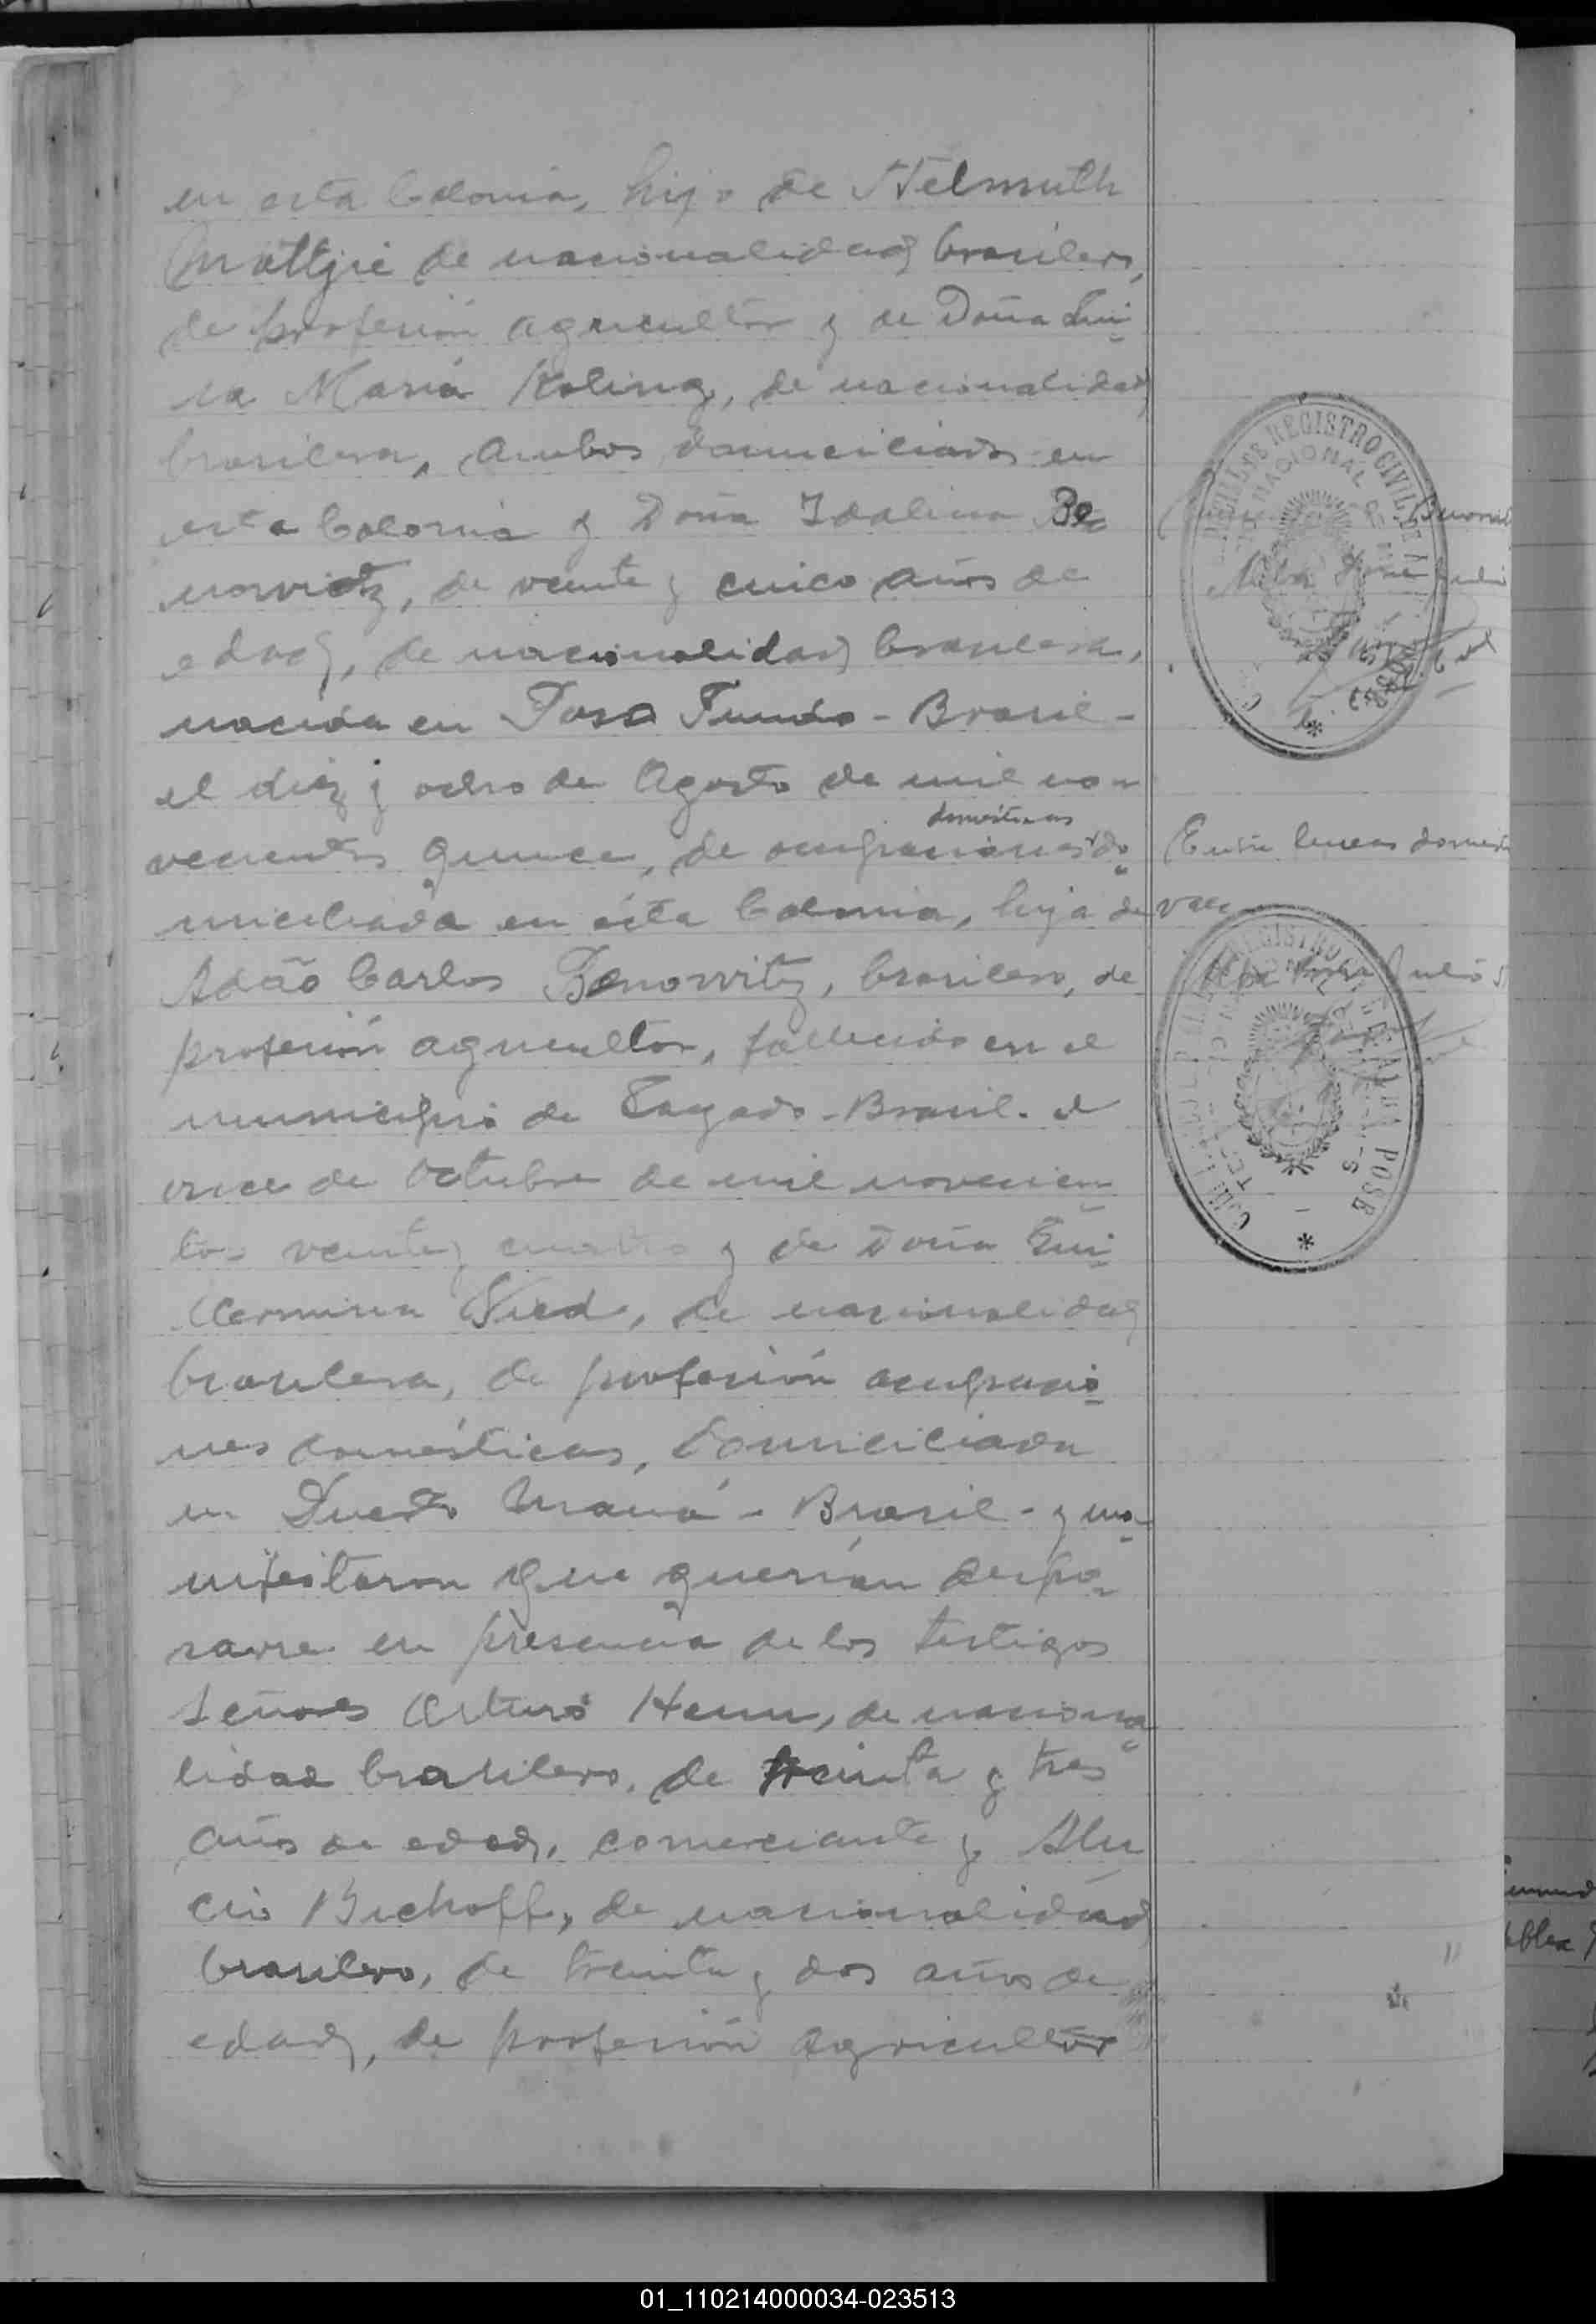 en esta Colonia, hijo de Helmuth
Mattjie de nacionalidad brasilero,
de profesión agricultor y de Doña Lui-
sa María Koling, de nacionalidad
brasilera, ambos domiciliados en
esta Colonia y Doña Idalina Be
norvitz, de veinte y cinco años de
edad, de nacionalidad brasilera,
nacida en Paso Fundo - Brasil -
el diez y ocho de Agosto de mil no-
domésticas
vecientos quince, de ocupaciones do-
miciliada en ésta Colonia, hija de
Adão Carlos Benorvitz, brasilero, de
profesión agricultor, fallecido en el
municipio de Lageado - Brasil - el
once de Octubre de mil novecien-
tos veinte y cuatro y de Doña Gui-
llermina Wied, de nacionalidad
brasilera, de profesión ocupacio-
nes domésticas, domiciliada
en Puerto Mauá - Brasil - y ma-
nifestaron que querían despo-
sarse en presencia de los testigos
Señores Arturo Henn, de naciona-
lidad brasilero, de treinta y tres
años de edad, comerciante y Alu
cio Bichoff, de nacionalidad
brasilero, de treinta y dos años de
edad, de profesión agricultor
REGISTRO CIVIL DE
NACIONAL DE MI
Alba Posse Julio
Entre lineas domesti
vale
Alba Posse Julio
ALBA POSE
01_110214000034-023513